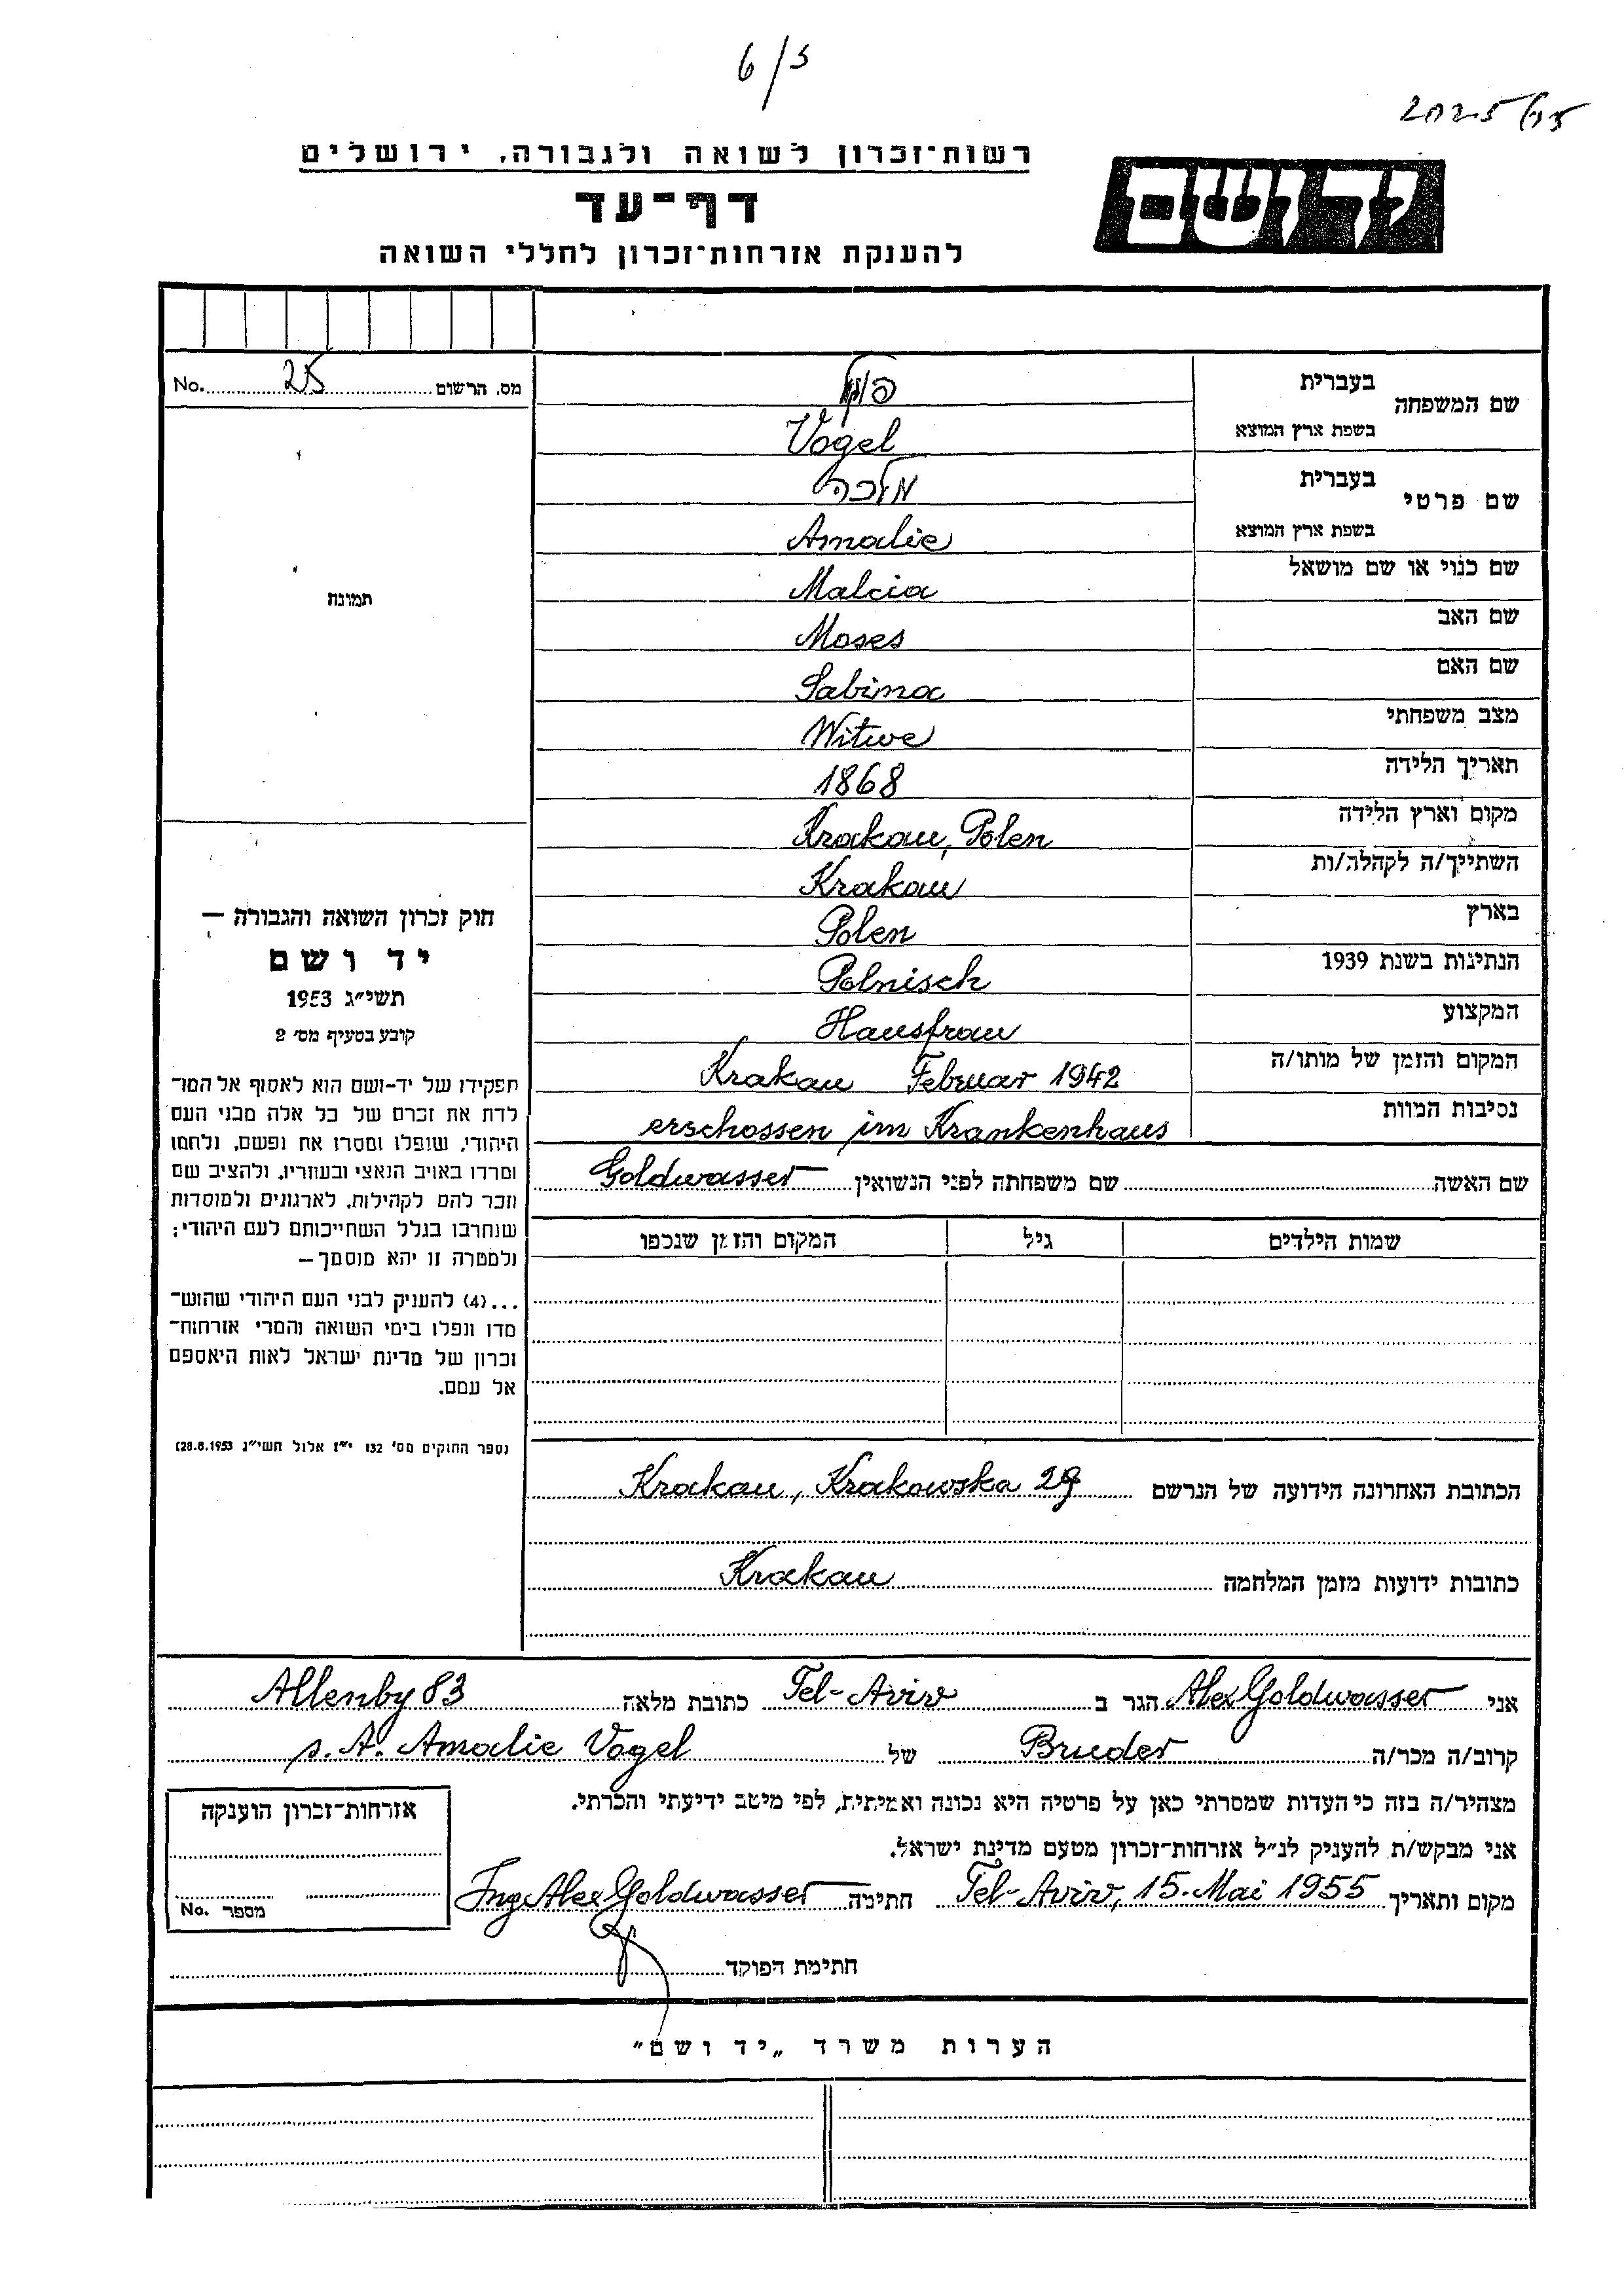 6/5
רשות־זכרון לשואה ולגבורה, ירושלים
ידושם
דף־עד
להענקת אזרחות־זכרון לחללי השואה
שם המשפחה בעברית
בשפת ארץ המוצא Vogel
שם פרטי בעברית מלכה
בשפת ארץ המוצא Amalie
שם כנוי או שם מושאל Malcia
שם האב Moses
שם האם Sabina
מצב משפחתי Witwe
תאריך הלידה 1868
מקום וארץ הלידה Krakau, Polen
השתייך/ה לקהלה/ות Krakau
בארץ Polen
הנתינות בשנת 1939 Polnisch
המקצוע Hausfrau
המקום והזמן של מותו/ה Krakau Februar 1942
נסיבות המוות erschossen im Krankenhaus
שם האשה שם משפחתה לפני הנשואין Goldwasser
שמות הילדים גיל המקום והזמן שנכפו
הכתובת האחרונה הידועה של הנרשם Krakau, Krakowska 29
כתובות ידועות מזמן המלחמה Krakau
מס. הרשום 25 No.
תמונה
חוק זכרון השואה והגבורה —
יד ושם
תשי״ג 1953
קובע בסעיף מס׳ 2
תפקידו של יד-ושם הוא לאסוף אל המו־
לדת את זכרם של כל אלה מבני העם
היהודי, שנפלו ומסרו את נפשם, נלחמו
ומרדו באויב הנאצי ובעוזריו, ולהציב שם
וזכר להם לקהילות, לארגונים ולמוסדות
שנחרבו בגלל השתייכותם לעם היהודי;
ולמטרה זו יהא מוסמך —
...(4) להעניק לבני העם היהודי שהוש־
מדו ונפלו בימי השואה והמרי אזרחות־
זכרון של מדינת ישראל לאות היאספם
אל עמם.
(ספר החוקים מס׳ 132 י״ז אלול תשי״ג 28.8.1953)
אני Alex Goldwasser הגר ב Tel-Aviv כתובת מלאה Allenby 83
קרוב/ה מכר/ה Bruder של s. A. Amalie Vogel
מצהיר/ה בזה כי העדות שמסרתי כאן על פרטיה היא נכונה ואמיתית, לפי מיטב ידיעתי והכרתי.
אני מבקש/ת להעניק לנ״ל אזרחות־זכרון מטעם מדינת ישראל.
מקום ותאריך Tel-Aviv, 15. Mai 1955 חתימה Ing Alex Goldwasser
חתימת הפוקד
אזרחות־זכרון הוענקה
מספר No.
הערות משרד „יד ושם״